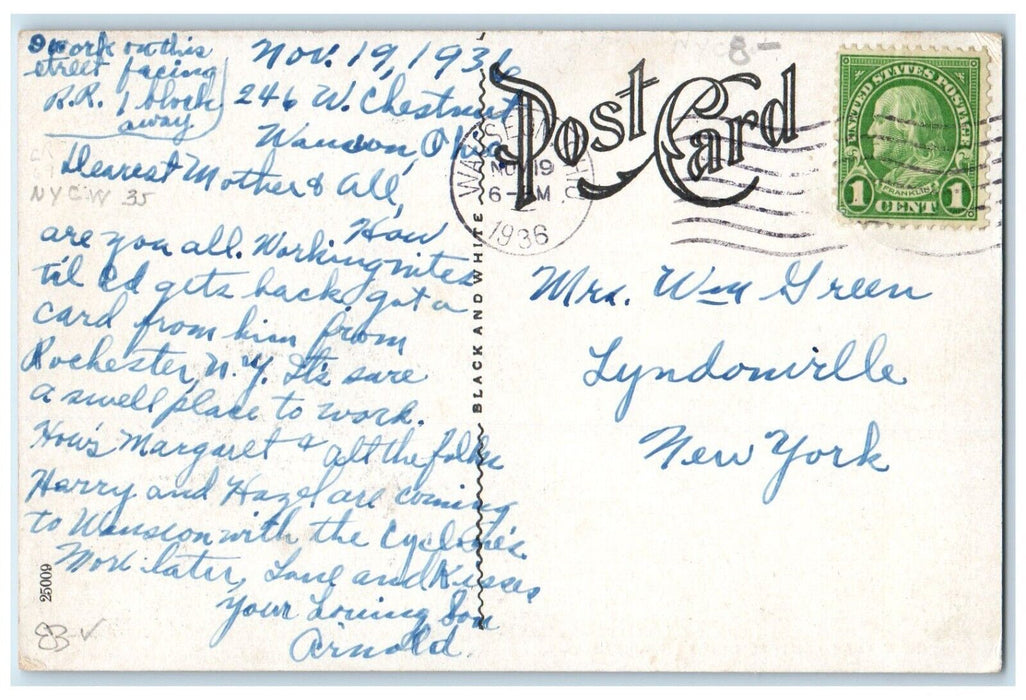 I work on this
street facing
R.R. 1 block
away
Nov. 19, 1936
246 W. Chestnut
Wauseon, Ohio
Dearest Mother & All,
NYCW 35
How
are you all. Working nites
til Ed gets back got a
card from him from
Rochester, N.Y. It's sure
a swell place to work.
How's Margaret & all the folks
Harry and Hazel are coming
to Wauseon with the Cyclone's.
More later, Love and Kisses
Your Loving Son
Arnold.
25009
83
BLACK AND WHITE
NYC 8-
Post Card
WAUSEON
NOV 19
6-PM
1936
UNITED STATES POSTAGE
FRANKLIN
1 CENT 1
Mrs. Wm Green
Lyndonville
New York